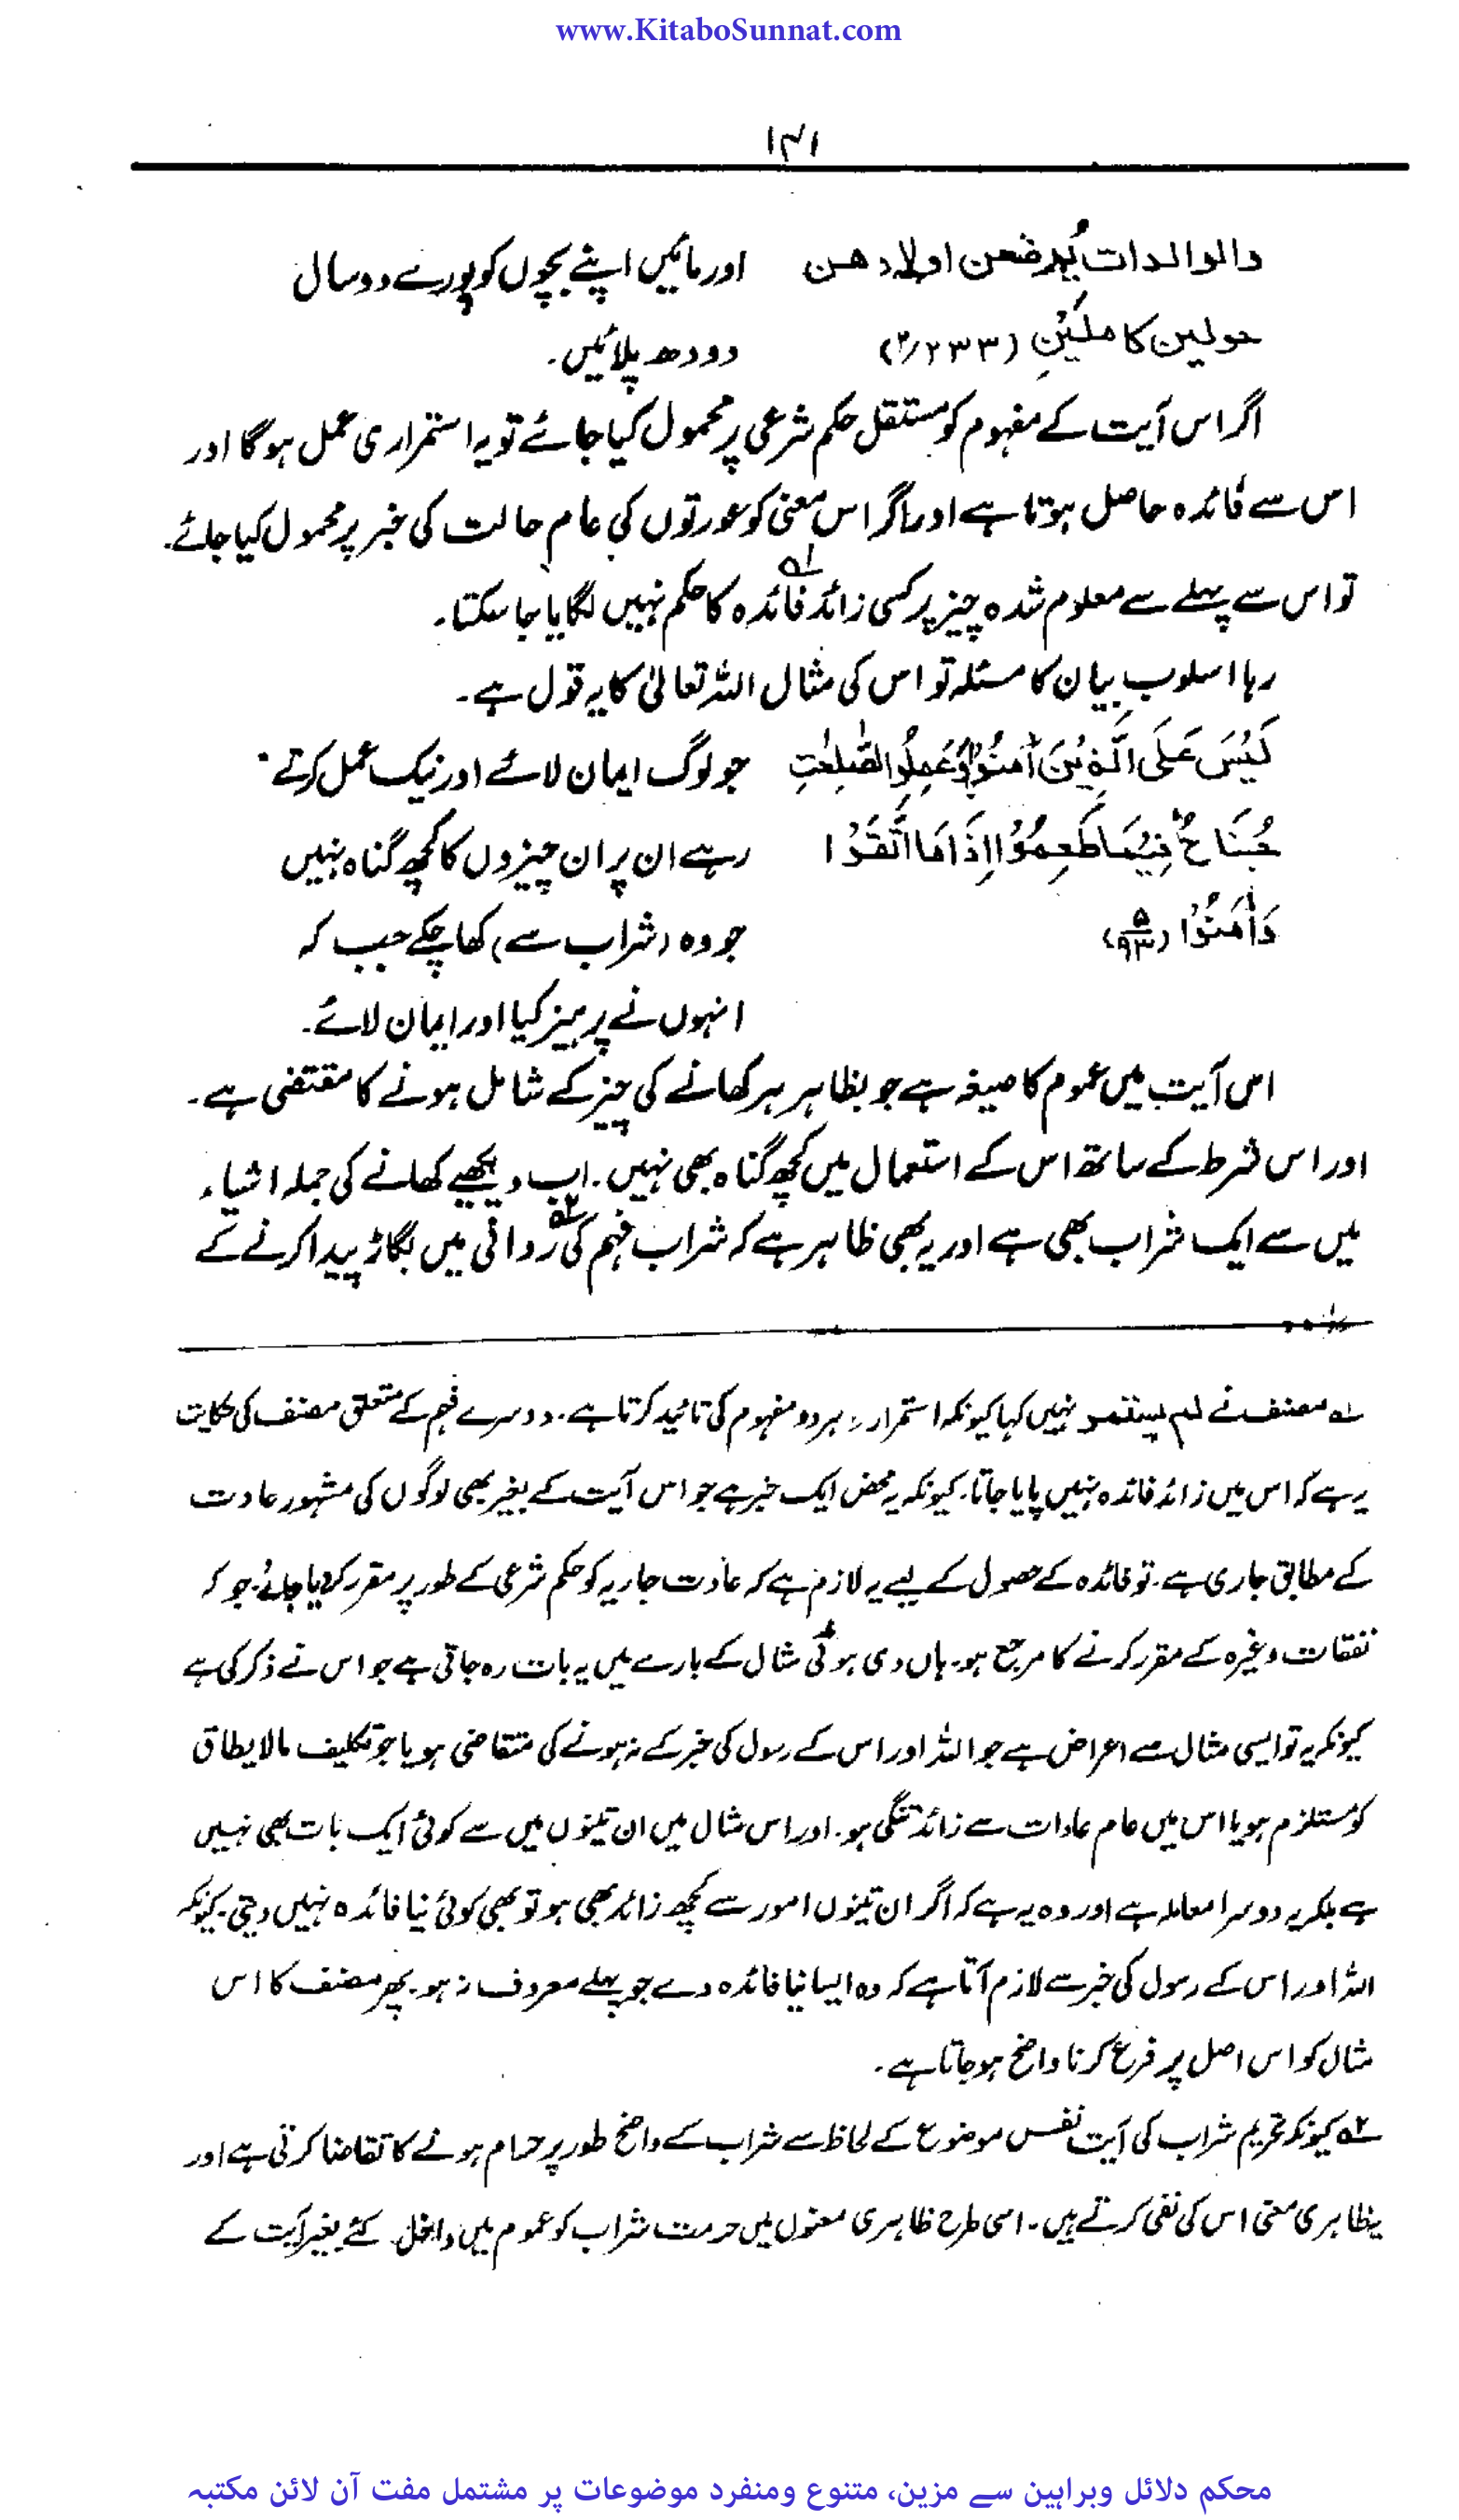 www.KitaboSunnat.com
۱۴۱
والوالدات يُرضعن اولادهن اور مائیں اپنے بچوں کو پورے دو سال
حولين كاملَينِ (۲/۲۳۳) دودھ پلائیں۔
اگر اس آیت کے مفہوم کو مستقل حکم شرعی پر محمول کیا جائے تو یہ استمراری عمل ہو گا اور
اس سے فائدہ حاصل ہوتا ہے اور اگر اس معنی کو عورتوں کی عام حالت کی خبر پر محمول کیا جائے۔
تو اس سے پہلے سے معلوم شدہ چیز پر کسی زائد فائدہ۱ کا حکم نہیں لگایا جا سکتا۔
رہا اسلوب بیان کا مسئلہ تو اس کی مثال اللہ تعالیٰ کا یہ قول ہے۔
لَيْسَ عَلَى الَّذِيْنَ اٰمَنُوْا وَعَمِلُوا الصّٰلِحٰتِ جو لوگ ایمان لائے اور نیک عمل کرتے
جُنَاحٌ فِيْمَا طَعِمُوْا اِذَا مَا اتَّقَوْا رہے ان پر ان چیزوں کا کچھ گناہ نہیں
وَاٰمَنُوْا (۵/۹۳) جو وہ (شراب سے) کھا چکے جب کہ
انہوں نے پرہیز کیا اور ایمان لائے۔
اس آیت میں عموم کا صیغہ ہے جو بظاہر ہر کھانے کی چیز کے شامل ہونے کا مقتضی ہے۔
اور اس شرط کے ساتھ اس کے استعمال میں کچھ گناہ بھی نہیں۔ اب دیکھیے کھانے کی جملہ اشیاء
میں سے ایک شراب بھی ہے اور یہ بھی ظاہر ہے کہ شراب فہم کی۲ روانی میں بگاڑ پیدا کرنے کے
۱ مصنف نے لم يستمر نہیں کہا کیونکہ استمرار ہر دو مفہوم کی تائید کرتا ہے۔ دوسرے فہم کے متعلق مصنف کی حکایت
یہ ہے کہ اس میں زائد فائدہ نہیں پایا جاتا۔ کیونکہ یہ محض ایک خبر ہے جو اس آیت کے بغیر بھی لوگوں کی مشہور عادت
کے مطابق جاری ہے۔ تو فائدہ کے حصول کے لیے یہ لازم ہے کہ عادت جاریہ کو حکم شرعی کے طور پر مقرر کر دیا جائے۔ جو کہ
نفقات وغیرہ کے مقرر کرنے کا مرجع ہو۔ ہاں دی ہوئی مثال کے بارے میں یہ بات رہ جاتی ہے جو اس نے ذکر کی ہے
کیونکہ یہ تو ایسی مثال سے اعراض ہے جو اللہ اور اس کے رسول کی خبر کے نہ ہونے کی متقاضی ہو یا جو تکلیف مالا یطاق
کو مستلزم ہو یا اس میں عام عادات سے زائد تنگی ہو۔ اور اس مثال میں ان تینوں میں سے کوئی ایک بات بھی نہیں
ہے بلکہ یہ دوسرا معاملہ ہے اور وہ یہ ہے کہ اگر ان تینوں امور سے کچھ زائد بھی ہو تو بھی کوئی نیا فائدہ نہیں دیتی۔ کیونکہ
اللہ اور اس کے رسول کی خبر سے لازم آتا ہے کہ وہ ایسا نیا فائدہ دے جو پہلے معروف نہ ہو۔ پھر مصنف کا اس
مثال کو اس اصل پر فرع کرنا واضح ہو جاتا ہے۔
۲ کیونکہ تحریم شراب کی آیت نفس موضوع کے لحاظ سے شراب کے واضح طور پر حرام ہونے کا تقاضا کرتی ہے اور
یہ ظاہری معنی اس کی نفی کرتے ہیں۔ اسی طرح ظاہری معنوں میں حرمت شراب کو عموم میں داخل کئے بغیر آیت کے
محکم دلائل وبراہین سے مزین، متنوع ومنفرد موضوعات پر مشتمل مفت آن لائن مکتبہ